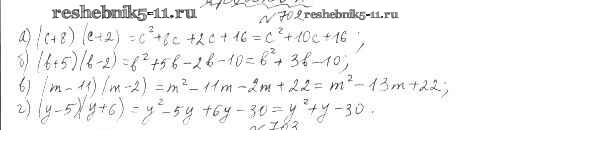 reshebnik5-11.ru
№702 reshebnik5-11.ru
а) (c+8)(c+2) = c²+8c+2c+16 = c²+10c+16;
б) (b+5)(b-2) = b²+5b-2b-10 = b²+3b-10;
в) (m-11)(m-2) = m²-11m-2m+22 = m²-13m+22;
г) (y-5)(y+6) = y²-5y+6y-30 = y²+y-30.
№703